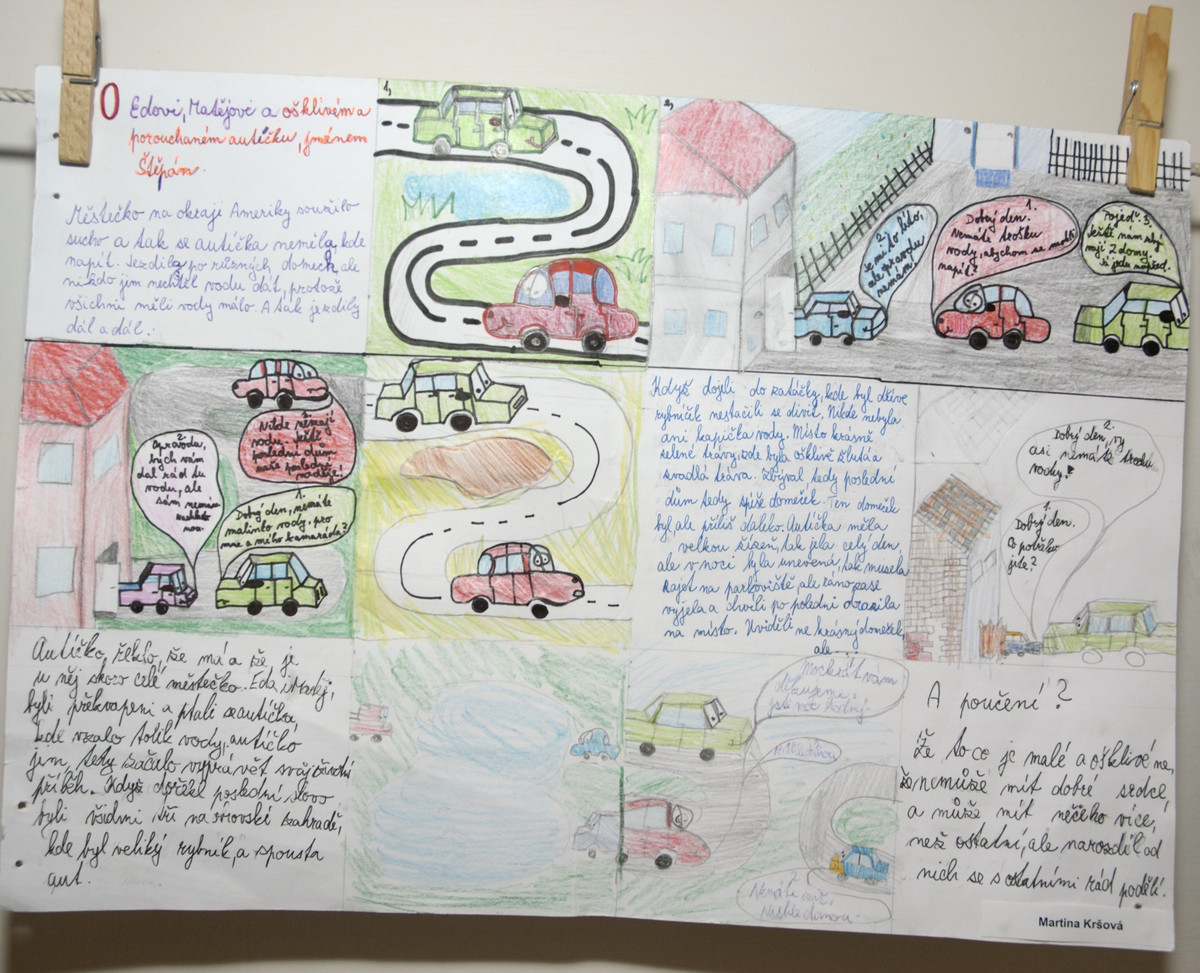 O Edovi, Matějovi a ošklivém a
porouchaném autíčku, jménem
Štěpán.
Městečko na okraji Ameriky soužilo
sucho a tak se autíčka neměla, kde
napít. Jezdila po různých domech, ale
nikdo jim nechtěl vodu dát, protože
všichni měli vody málo. A tak jezdily
dál a dál.
1,
2,
2.
Je mi to líto,
ale opravdu
nemám.
1.
Dobrý den.
Nemáte trošku
vody, abychom se mohli
napít?
Pojeď. 3.
Ještě nám zbý
vají 2 domy.
jedu napřed.
2.
Opravdu,
bych vám
dal rád tu
vodu, ale
sám nemám
Nikde nemají
vodu. Ještě
poslední dům
naše poslední
naděje!
1.
Dobrý den, nemáte
malinko vody, pro
mne a mého kamaráda?
Když dojeli do zatáčky, kde byl dříve
rybníček nestačili se divit. Nikde nebyla
ani kapička vody. Místo krásně
zelené trávy, zde byla ošklivě žlutá a
svadlá tráva. Zbýval, tedy poslední
dům tedy spíše domeček. Ten domeček
byl ale příliš daleko. Autíčka měla
velkou žízeň, tak jela celý den,
ale v noci byla unevená, tak musela
zajet na parkoviště, ale ráno zase
vyjela a chvíli po poledni dorazila
na místo. Uviděli ne krásný domeček,
ale...
2.
Dobrý den, vy
asi nemáte trochu
vody?
1.
Dobrý den.
Co potřebu
jete?
Autíčko, řeklo, že má a že je
u něj skoro celé městečko. Eda i Matěj,
byli překvapeni a ptali se autíčka,
kde vzalo tolik vody, autíčko
jim, tedy začalo vyprávět svůj životní
příběh. Když dořekl poslední slovo
byli všichni tři na obrovské zahradě,
kde byl veliký rybník, a spousta
aut.
Mockrát vám
děkujeme,
jste moc hodný.
2.
Nemáte zač.
Nashledanou
A poučení?
Že to co je malé a ošklivé ne,
že nemůže mít dobré srdce,
a může mít něčeho více,
než ostatní, ale narozdíl od
nich se s ostatními rád podělí.
Martina Kršová